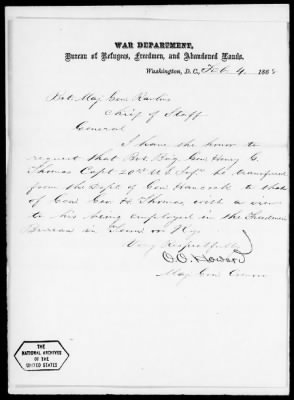 WAR DEPARTMENT,
Bureau of Refugees, Freedmen, and Abandoned Lands.
Washington, D. C., Feb 4, 1868
Bvt. Maj Gen Rawlins
Chief of Staff
General
I have the honor to
request that Bvt. Brig. Gen Henry G.
Thomas Capt 20th U.S. Inf. be transferred
from the Dept. of Gen Hancock to that
of Gen Geo. H. Thomas with a view
to his being employed in the Freedmens
Bureau in Tenn or Ky.
Very Respectfully
O.O. Howard
Maj Gen Comr
THE
NATIONAL ARCHIVES
OF THE
UNITED STATES